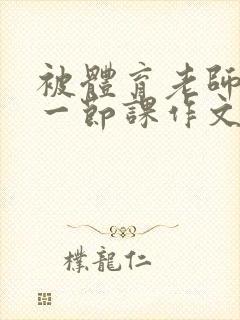 被體育老師
一節課作文
樸龍仁